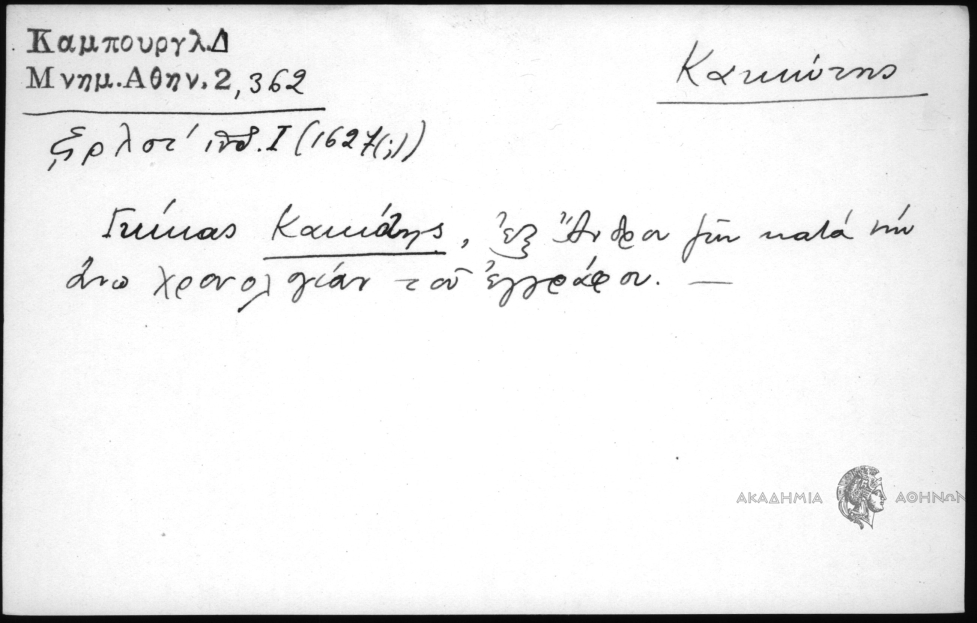 Καμπουργλ.Δ
Μνημ.Αθην.2,362
Κακκώτης
ζρλστ' ινδ. I (1627(;))
Γκίκας Κακκώτης, ἐξ Ἄνδρου ζῶν κατά τήν
ἄνω χρονολογίαν τοῦ ἐγγράφου. —
ΑΚΑΔΗΜΙΑ ΑΘΗΝΩΝ